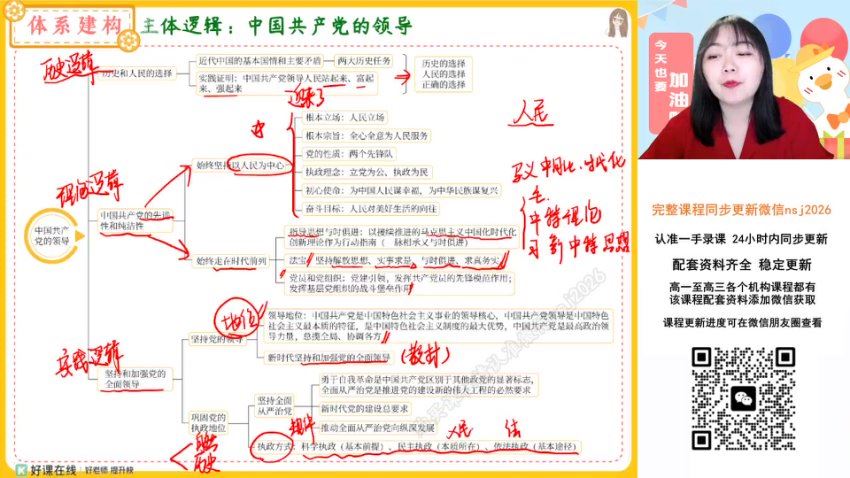 体系建构
主体逻辑：中国共产党的领导
历史逻辑
历史和人民的选择
近代中国的基本国情和主要矛盾
两大历史任务
实践证明：中国共产党领导人民站起来、富起
来、强起来
历史的选择
人民的选择
正确的选择
人民
根本立场：人民立场
根本宗旨：全心全意为人民服务
党的性质：两个先锋队
执政理念：立党为公、执政为民
初心使命：为中国人民谋幸福，为中华民族谋复兴
奋斗目标：人民对美好生活的向往
始终坚持以人民为中心
理论逻辑
中国共产党的先进
性和纯洁性
中国共产
党的领导
始终走在时代前列
指导思想与时俱进：以接续推进的马克思主义中国化时代化
创新理论作为行动指南（ 脉相承又与时俱进）
法宝：坚持解放思想、实事求是、与时俱进、求真务实
党员和党组织：党建引领，发挥共产党员的先锋模范作用；
发挥基层党组织的战斗堡垒作用
马义中国化、时代化
毛、
中特理论
习新中特思想
地位
实践逻辑
坚持和加强党的
全面领导
坚持党的领导
领导地位：中国共产党是中国特色社会主义事业的领导核心，中国共产党领导是中国特色
社会主义最本质的特征，是中国特色社会主义制度的最大优势，中国共产党是最高政治领
导力量，总揽全局、协调各方
新时代坚持和加强党的全面领导
巩固党的
执政地位
坚持全面
从严治党
勇于自我革命是中国共产党区别于其他政党的显著标志，
全面从严治党是推进党的建设新的伟大工程的必然要求
新时代党的建设总要求
推动全面从严治党向纵深发展
规律
人民
法
执政方式：科学执政（基本前提）、民主执政（本质所在）、依法执政（基本途径）
好课在线
好老师 提升快
今天也要
加油
完整课程同步更新微信nsj2026
认准一手录课 24小时内同步更新
配套资料齐全 稳定更新
高一至高三各个机构课程都有
该课程配套资料添加微信获取
课程更新进度可在微信朋友圈查看